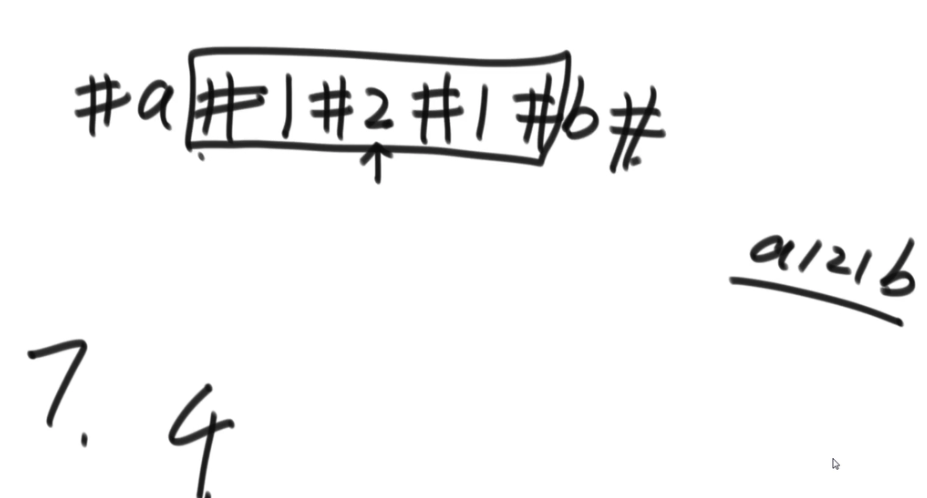 #a#1#2#1#b#
a121b
7. 4